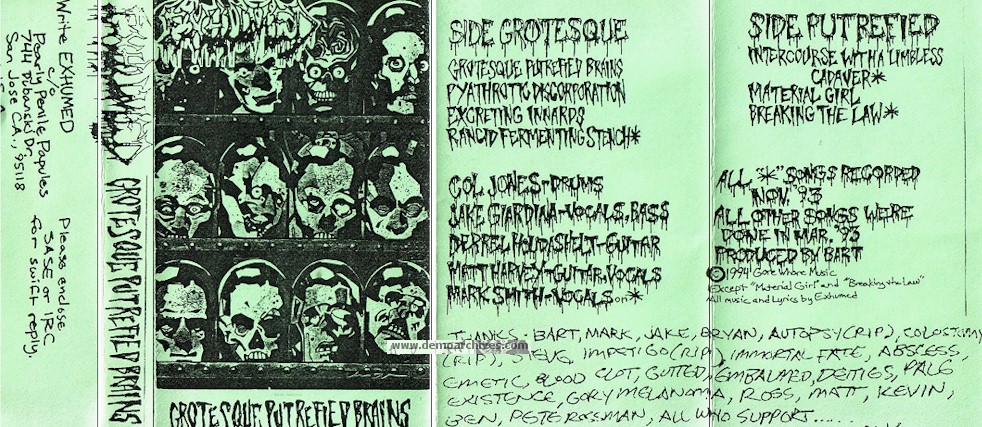 Write EXHUMED
c/o
Pearly Penile Papules
San Jose CA., 95118
Please enclose
SASE or IRC
for swift reply
EXHUMED
GROTESQUE PUTREFIED BRAINS
EXHUMED
GROTESQUE PUTREFIED BRAINS
SIDE GROTESQUE
GROTESQUE PUTREFIED BRAINS
PYATHROTIC DISCORPORATION
EXCRETING INNARDS
RANCID FERMENTING STENCH*
COL JONES-DRUMS
JAKE GIARDINA-VOCALS, BASS
DERREL HOUDASHELT-GUITAR
MATT HARVEY-GUITAR, VOCALS
MARK SMITH-VOCALS on *
SIDE PUTREFIED
INTERCOURSE WITH A LIMBLESS
CADAVER*
MATERIAL GIRL
BREAKING THE LAW*
ALL "*" SONGS RECORDED
NOV. '93
ALL OTHER SONGS WERE
DONE IN MAR. '93
PRODUCED BY BART
© 1994 Gore Whore Music
Except "Material Girl" and "Breaking the Law"
All music and Lyrics by Exhumed
THANKS - BART, MARK, JAKE, BRYAN, AUTOPSY (RIP), COLOSTOMY
(RIP), IMPETIGO (RIP), IMMORTAL FATE, ABSCESS,
EMETIC, BLOOD CLOT, GUTTED, EMBALMED, DEITIES, PALE
EXISTENCE, GORY MELANOMA, ROSS, MATT, KEVIN,
BEN, PETE ROSSMAN, ALL WHO SUPPORT.....
www.demoarchives.com